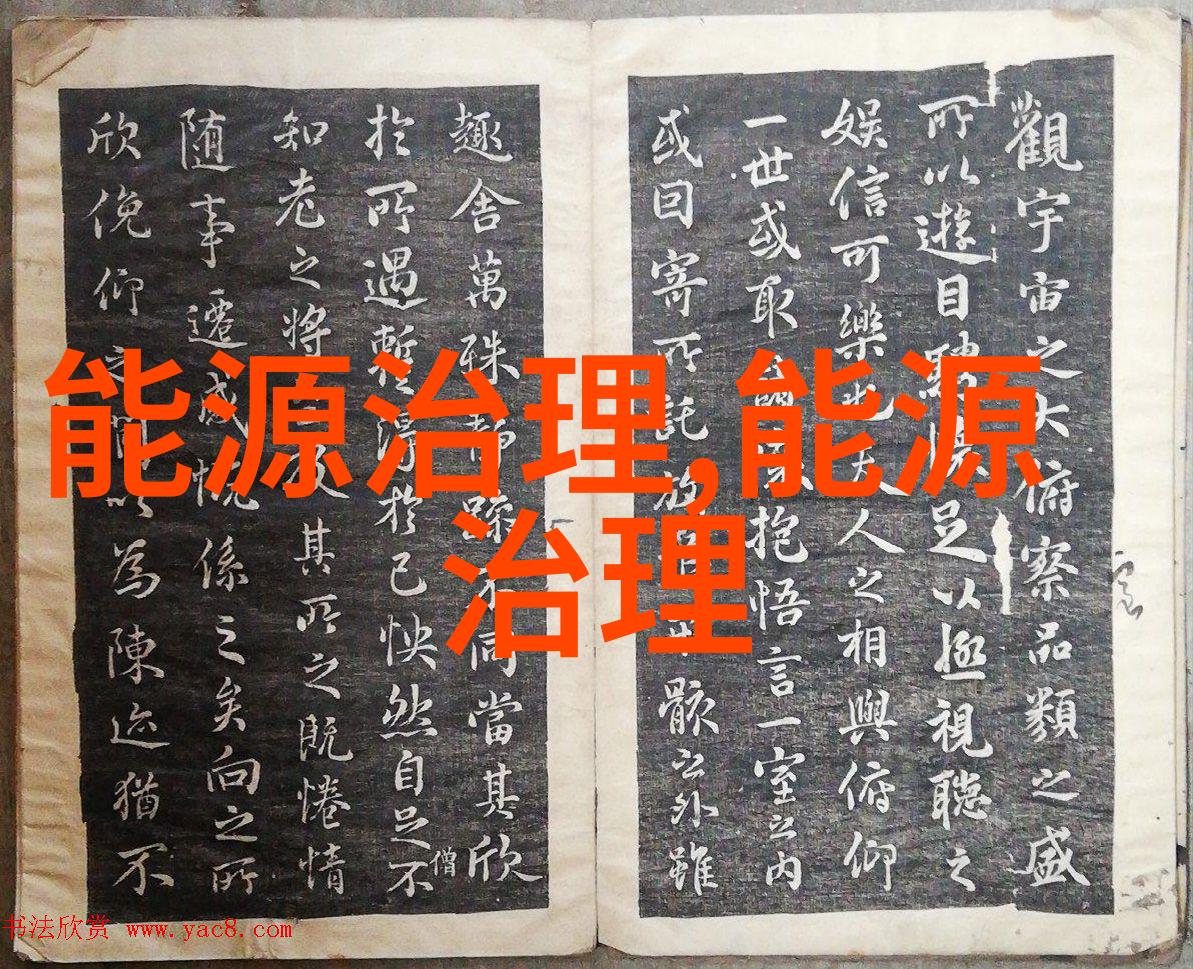 觀宇宙之大俯察品類之盛
所以遊目騁懷足以極視聽之
娛信可樂也夫人之相與俯仰
一世或取抱悟言一室之内
或因寄所託放骸之外雖
趣舍萬殊靜躁不同當其欣
僧
於所遇暫得於己怏然自足不
知老之將其所之既惓情
随事遷感慨係之矣向之所
欣俛仰之間以為陳迹猶不
能源治理,能源
治理
书法欣赏 www.yac8.com